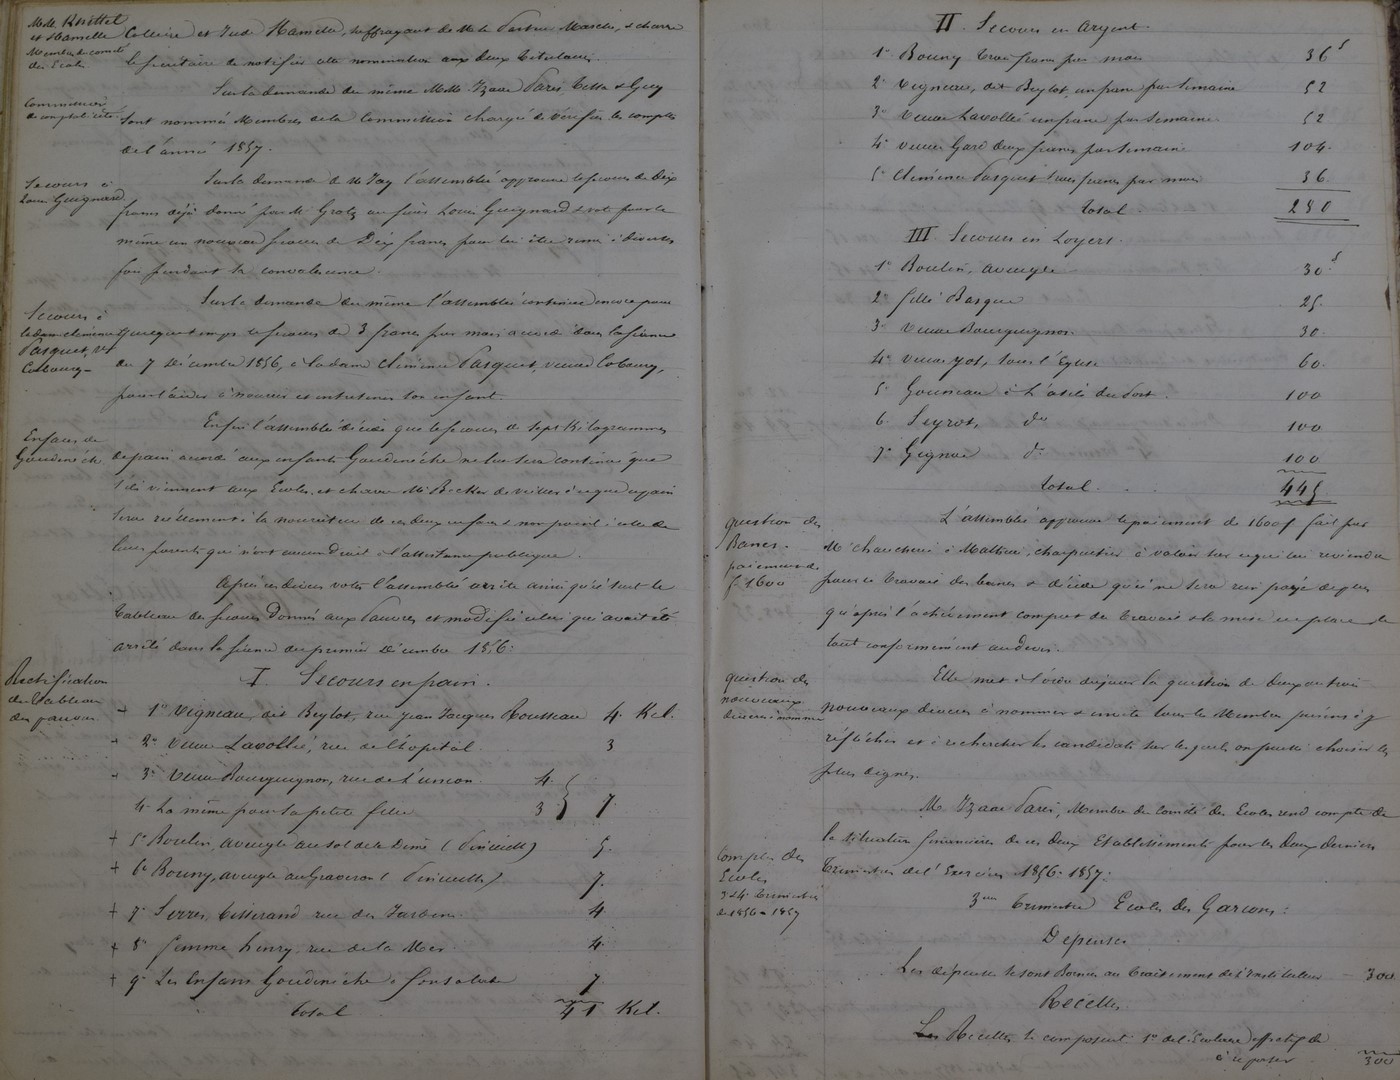 MM. Knittel
et Hamelle
Membres du comité
des Ecoles
et Jude Hamelle, suffragant de M. le Pasteur Maschs, & charge
le secrétaire de notifier cette nomination aux deux titulaires.
Commission
de comptabilité
Sur la demande du même MM. Izaac Paris, Cella & Guy
sont nommés Membres de la Commission chargée de vérifier les comptes
de l'année 1857.
Secours à
Louis Guignard
Sur la demande de M. Jay l'assemblée approuve le secours de Dix
francs déjà donné par M. Grotz au sieur Louis Guignard & vote pour le
même un nouveau secours de Dix francs pour lui être remis à diverses
fois pendant sa convalescence.
Secours à
la dame clémence
Pasquet, Vve
Cobourg
Sur la demande du même l'assemblée continue encore pour
quelque temps le secours de 3 francs par mois accordé dans la séance
du 7 Décembre 1856, à la dame Clémence Pasquet, veuve Cobourg,
pour l'aider à nourrir et entretenir son enfant.
Enfans de
Goudinèche
Enfin l'assemblée décide que le secours de sept Kilogrammes
de pain accordé aux enfants Goudinèche ne leur sera continué que
s'ils viennent aux Ecoles, et charge Mr Becker de veiller à ce que ce pain
serve réellement à la nourriture de ces deux enfans & non point à celle de
leurs parents qui n'ont aucun droit à l'assistance publique.
Après ces divers votes l'assemblée arrête ainsi qu'il suit le
Tableau des secours donnés aux Pauvres et modifie celui qui avait été
arrêté dans la séance du premier Décembre 1856.
Rectification
du Tableau
des pauvres
I. Secours en pain.
+ 1° Vigneau, dit Beylot, rue Jean Jacques Rousseau 4. Kil.
+ 2° Veuve Lavollée, rue de l'hopital 3
+ 3° Veuve Bourguignon, rue de l'union 4.
4. La même pour sa petite fille 3 } 7.
+ 5° Boulin, aveugle au sol de la Dime (Pineuilh) 5.
+ 6° Bouny, aveugle au Graveron (Pineuilh) 7.
+ 7° Serres, Tisserand rue des Jardins 4.
+ 8° femme Henry, rue de la Mer 4.
+ 9° Les Enfans Goudinèche à 7
Total 41 Kil.
II. Secours en argent.
1° Bouny trois francs par mois 36 f
2° Vigneau, dit Beylot, un franc par semaine 52
3° Veuve Lavollée un franc par semaine 52
4° Veuve Gard deux francs par semaine 104.
5° Clémence Pasquet trois francs par mois 36.
Total 280
III. Secours en Loyers.
1° Boulin, aveugle 30. f
2° fille Basque 25.
3° Veuve Bourguignon 30.
4° Veuve Yot, sous l'Eglise 60.
5° Gouineau à l'asile du Port. 100
6. Peyrot, do 100
7° Guignard do 100
Total. 445
question des
Bancs.
paiement de
f. 1600
L'assemblée approuve le paiement de 1600 f fait par
Mr à Mathieu, charpentier à valoir sur ce qui lui reviendra
pour le travail des bancs & décide qu'il ne sera rien payé de plus
qu'après l'achèvement complet du travail & la mise en place de
tout conformément au devis.
question des
nouveaux
diacres à nommer
Elle met à l'ordre du jour la question de deux ou trois
nouveaux diacres à nommer & invite tous les Membres présens à y
réfléchir et à rechercher les candidats sur lesquels on puisse choisir les
plus dignes.
Comptes des
Ecoles
3 & 4e Trimestre
de 1856-1857
M. Izaac Paris, Membre du Comité des Ecoles rend compte de
la situation financière de ces deux Etablissements pour les deux derniers
Trimestres de l'Exercice 1856-1857.
3me Trimestre Ecole des Garçons.
Depenses
Les dépenses se sont Bornées au traitement de l'instituteur 300
Recettes.
Les Recettes se composent 1° de l'Ecolage effectif de
à reporter 300